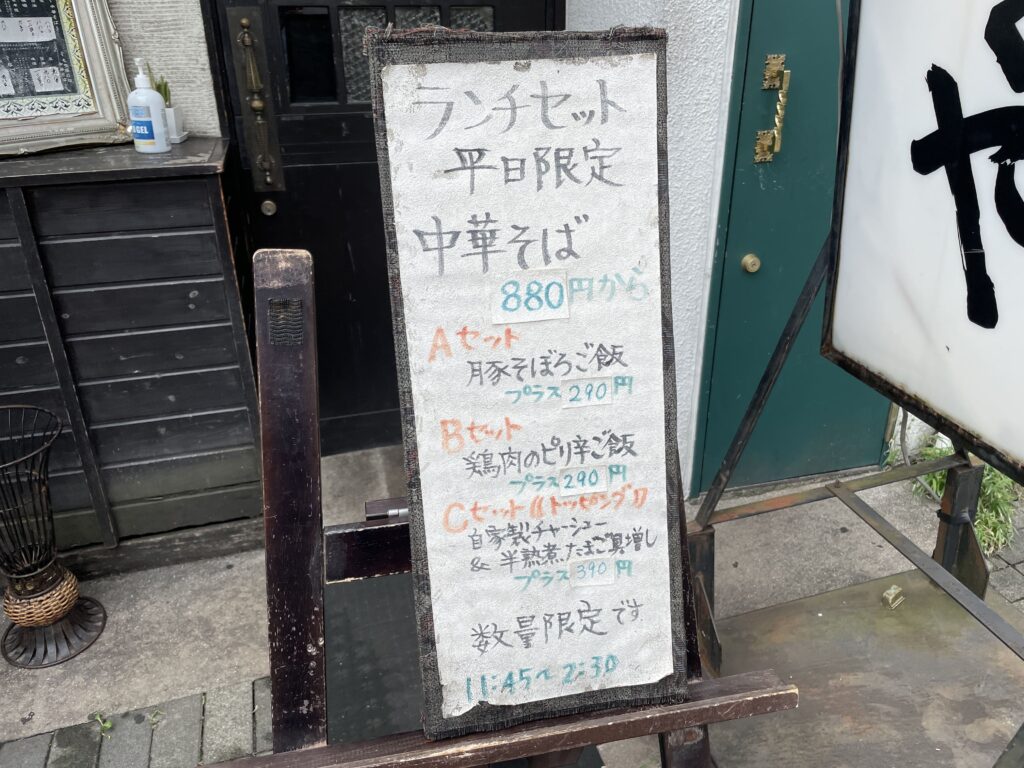 ランチセット
平日限定
中華そば
880円から
Aセット
豚そぼろご飯
プラス290円
Bセット
鶏肉のピリ辛ご飯
プラス290円
Cセット《トッピング》
自家製チャーシュー
& 半熟煮たまご具増し
プラス390円
数量限定です
11:45~2:30
GEL